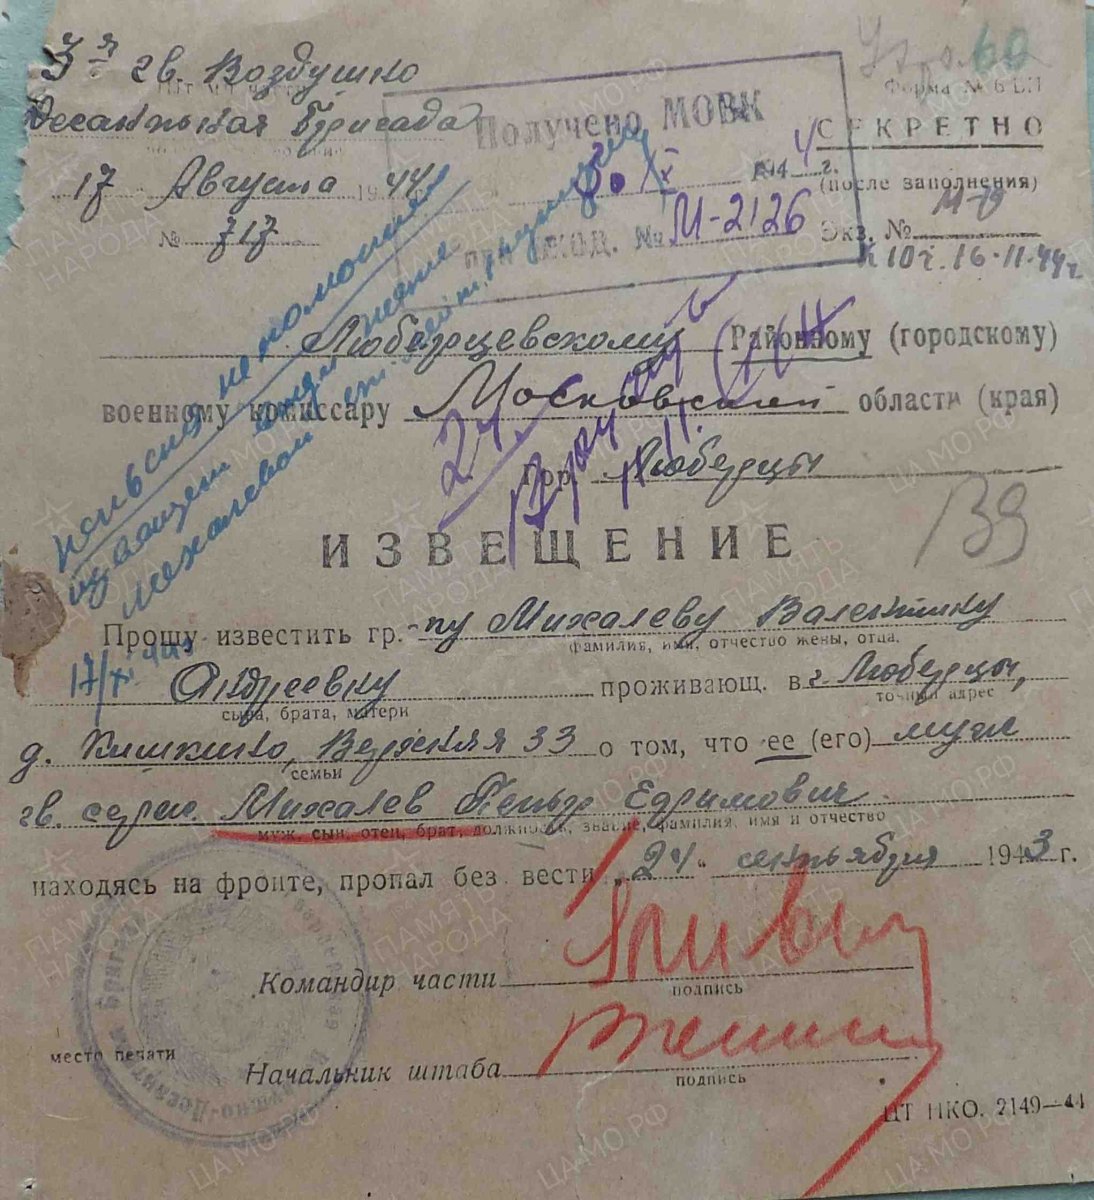 3я гв. Воздушно
Десантная бригада
17 Августа 1944
№ 717
60
Форма № 6 БП
СЕКРЕТНО
(после заполнения)
Экз. №
М-19
к 10ч. 16-11-44г
Получено МОВК
194 4 г.
ВХОД. № М-2126
Люберцевскому Районному (городскому)
военному комиссару Московской области (край)
гор. Люберцы
24.
11.11.
139
ИЗВЕЩЕНИЕ
Прошу известить гр.-ну Михалеву Валентину
фамилия, имя, отчество жены, отца,
Андреевну проживающ. в г. Люберцы,
сына, брата, матери
точный адрес
д. Кишкино, Верхняя 33 о том, что ее (его) муж
семьи
гв. серж. Михалев Петр Ефимович
муж, сын, отец, брат, должность, звание, фамилия, имя и отчество
находясь на фронте, пропал без вести „24" сентября 1943 г.
Командир части
подпись
место печати
Начальник штаба
подпись
ЦТ НКО. 2149—44
извещение
Михалевой
17/XI 44г
ПАМЯТЬ НАРОДА
ЦА МО РФ